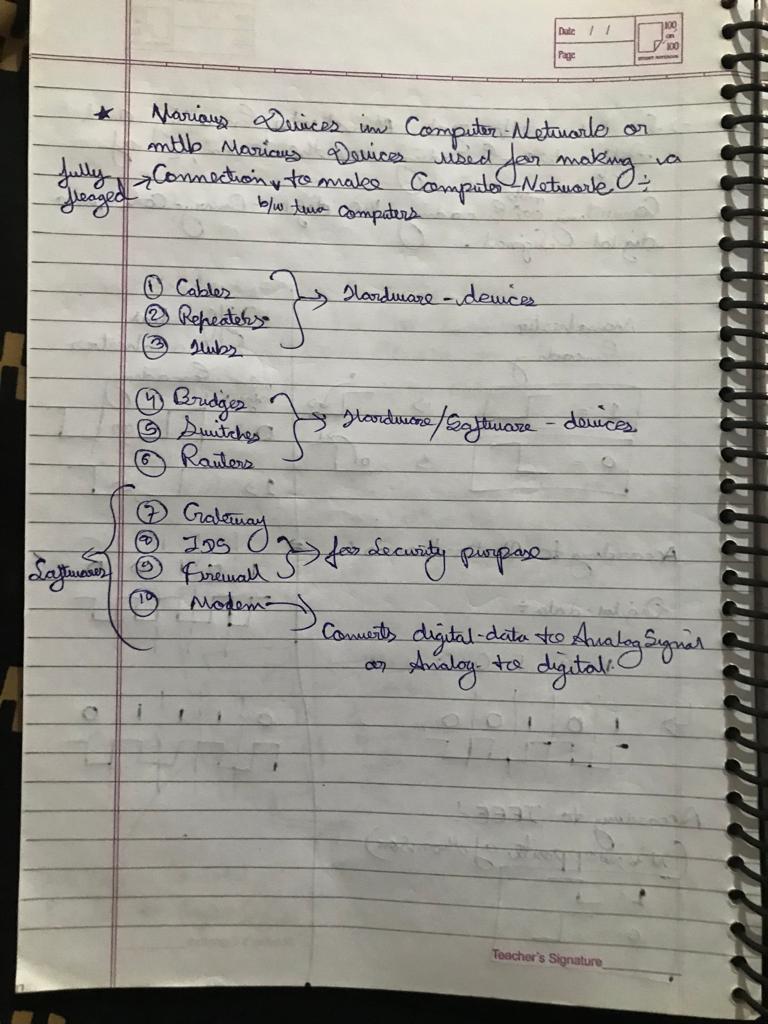 Date / /
Page
100 on 100
★ Various Devices in Computer-Network or
mtlb Various Devices used for making a
fully fleaged → Connection, to make Computer-Network ÷
b/w two computers
① Cables
② Repeaters
③ Hubs
} → Hardware - devices
④ Bridges
⑤ Switches
⑥ Routers
} → Hardware/Software - devices
Softwares
⑦ Gateway
⑧ IDS
⑨ Firewall
} → for Security purpose
⑩ Modem →
Converts digital-data to Analog Signal
or Analog- to digital.
Teacher's Signature